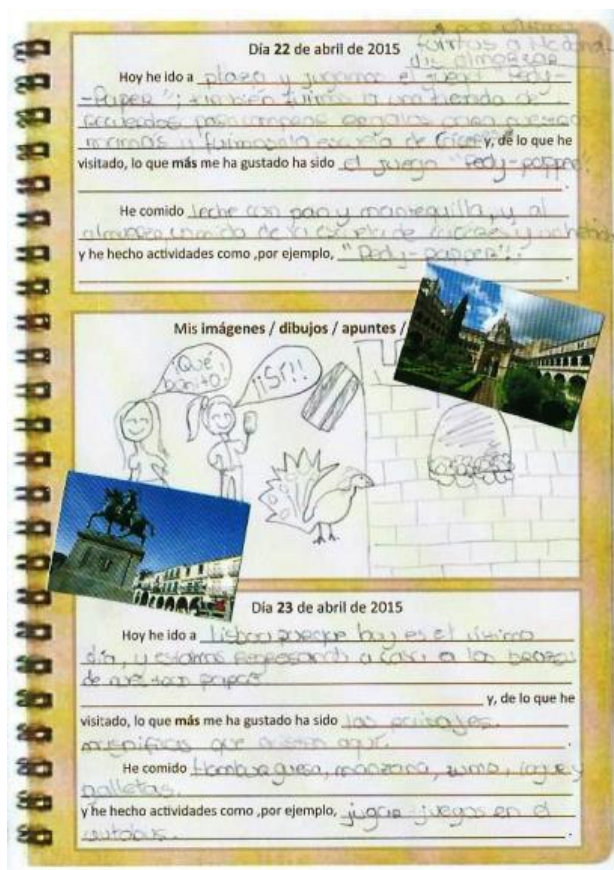 y por último
fuimos a Mcdonald
Día 22 de abril de 2015
almorzar
Hoy he ido a plaza y jugamos el juego "Pedy-
-Paper"; también fuimos a una tienda de
recuerdos para comprar regalos para nuestras
mamás y fuimos a la escuela de Cáceres y, de lo que he
visitado, lo que más me ha gustado ha sido el juego "Pedy-papper"
.
He comido leche con pan y mantequilla, y al
almuerzo comida de la escuela de Cáceres y
y he hecho actividades como ,por ejemplo, "Pedy-papper".
.
Mis imágenes / dibujos / apuntes /
¡Qué
bonito!
¡¡Sí!!
Día 23 de abril de 2015
Hoy he ido a Lisboa porque hoy es el último
día, y estamos regresando a casa a los brazos
de nuestros papás
y, de lo que he
visitado, lo que más me ha gustado ha sido las paisajes
magníficas que aquí.
He comido Hamburguesa, manzana, zumo, y
galletas.
y he hecho actividades como ,por ejemplo, jugar juegos en el
autobus.
.